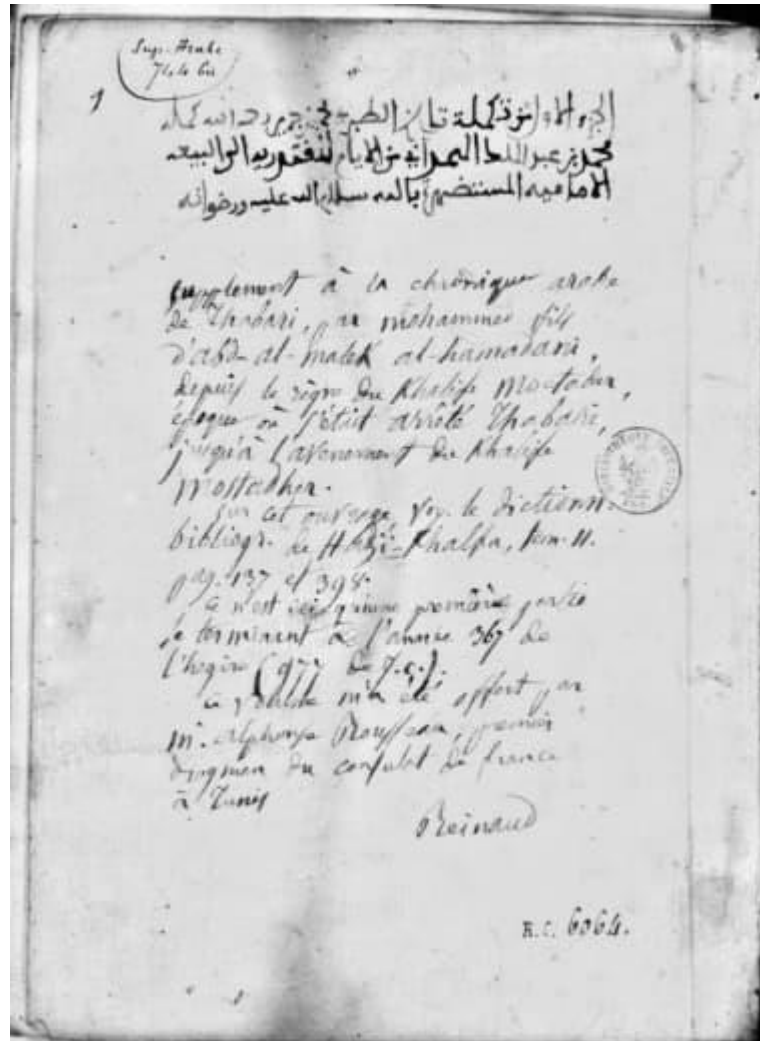 Sup. Arabe
744 bis
1
الجزء الاول من تكملة تاريخ الطبري محمد بن جرير رحمه الله كمله
محمد بن عبد الملك الهمداني من الايام المقتدرية الى البيعة
الامامية المستضهرية بالله سلام الله عليه ورضوانه
supplément à la chronique arabe
de Thabari, par mohammed fils
d'abd-al-malek al-hamadani,
depuis le règne du Khalife Moctader,
époque où s'était arrêté Thabari,
jusqu'à l'avènement du Khalife
Mostadher.
sur cet ouvrage, voy. le dictionn.
bibliogr. de Hadji-Khalfa, tom. II.
pag. 137 et 398.
ce n'est ici qu'une première partie
se terminant à l'année 367 de
l'hégire (977 de J.C.).
ce volume m'a été offert par
Mr. alphonse Rousseau, premier
drogman du consulat de france
à Tunis
Reinaud
R.C. 6064.